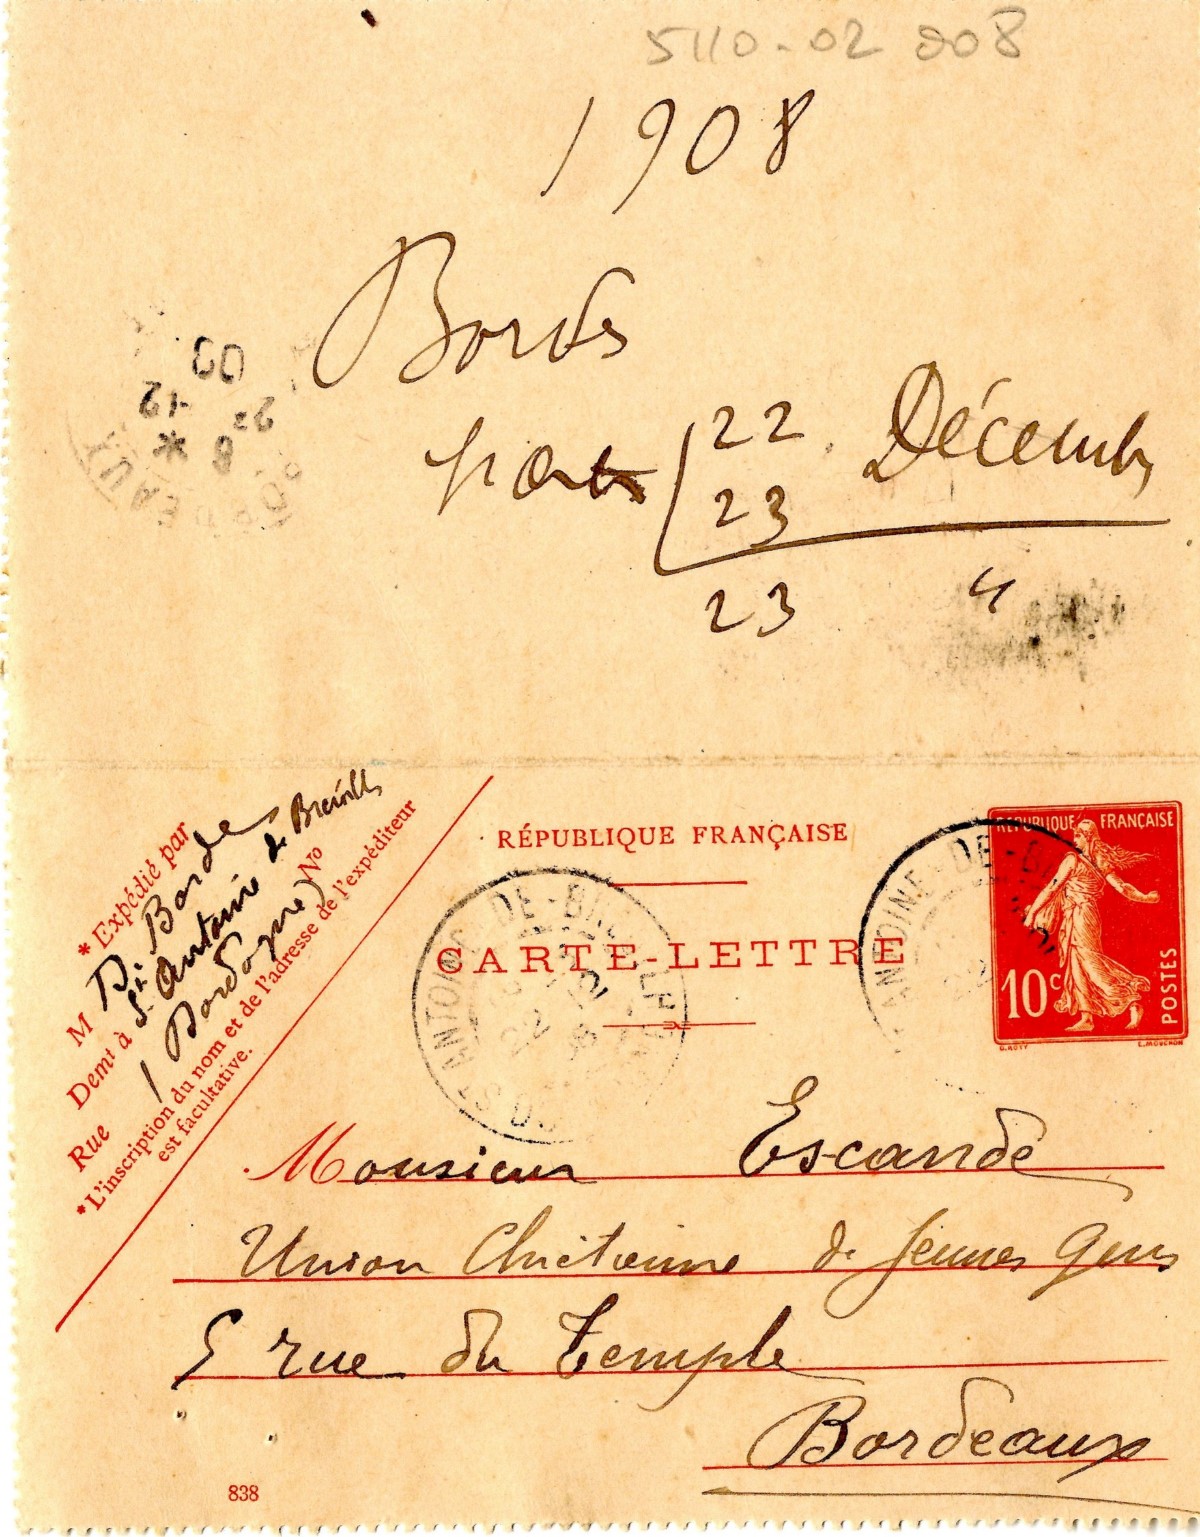 5110-02 208
1908
Bordes
22 Décembre
23
23 "
BORDEAUX
6 *
22 -12
09
* Expédié par
M Dr Bordes
Demt à St Antoine de Breuilh
Rue (Dordogne) No
*L'inscription du nom et de l'adresse de l'expéditeur
est facultative.
RÉPUBLIQUE FRANÇAISE
CARTE-LETTRE
RÉPUBLIQUE FRANÇAISE
10c
POSTES
O. ROTY
E. MOUCHON
Monsieur Escande
Union Chrétienne de Jeunes Gens
5 rue du Temple
Bordeaux
838